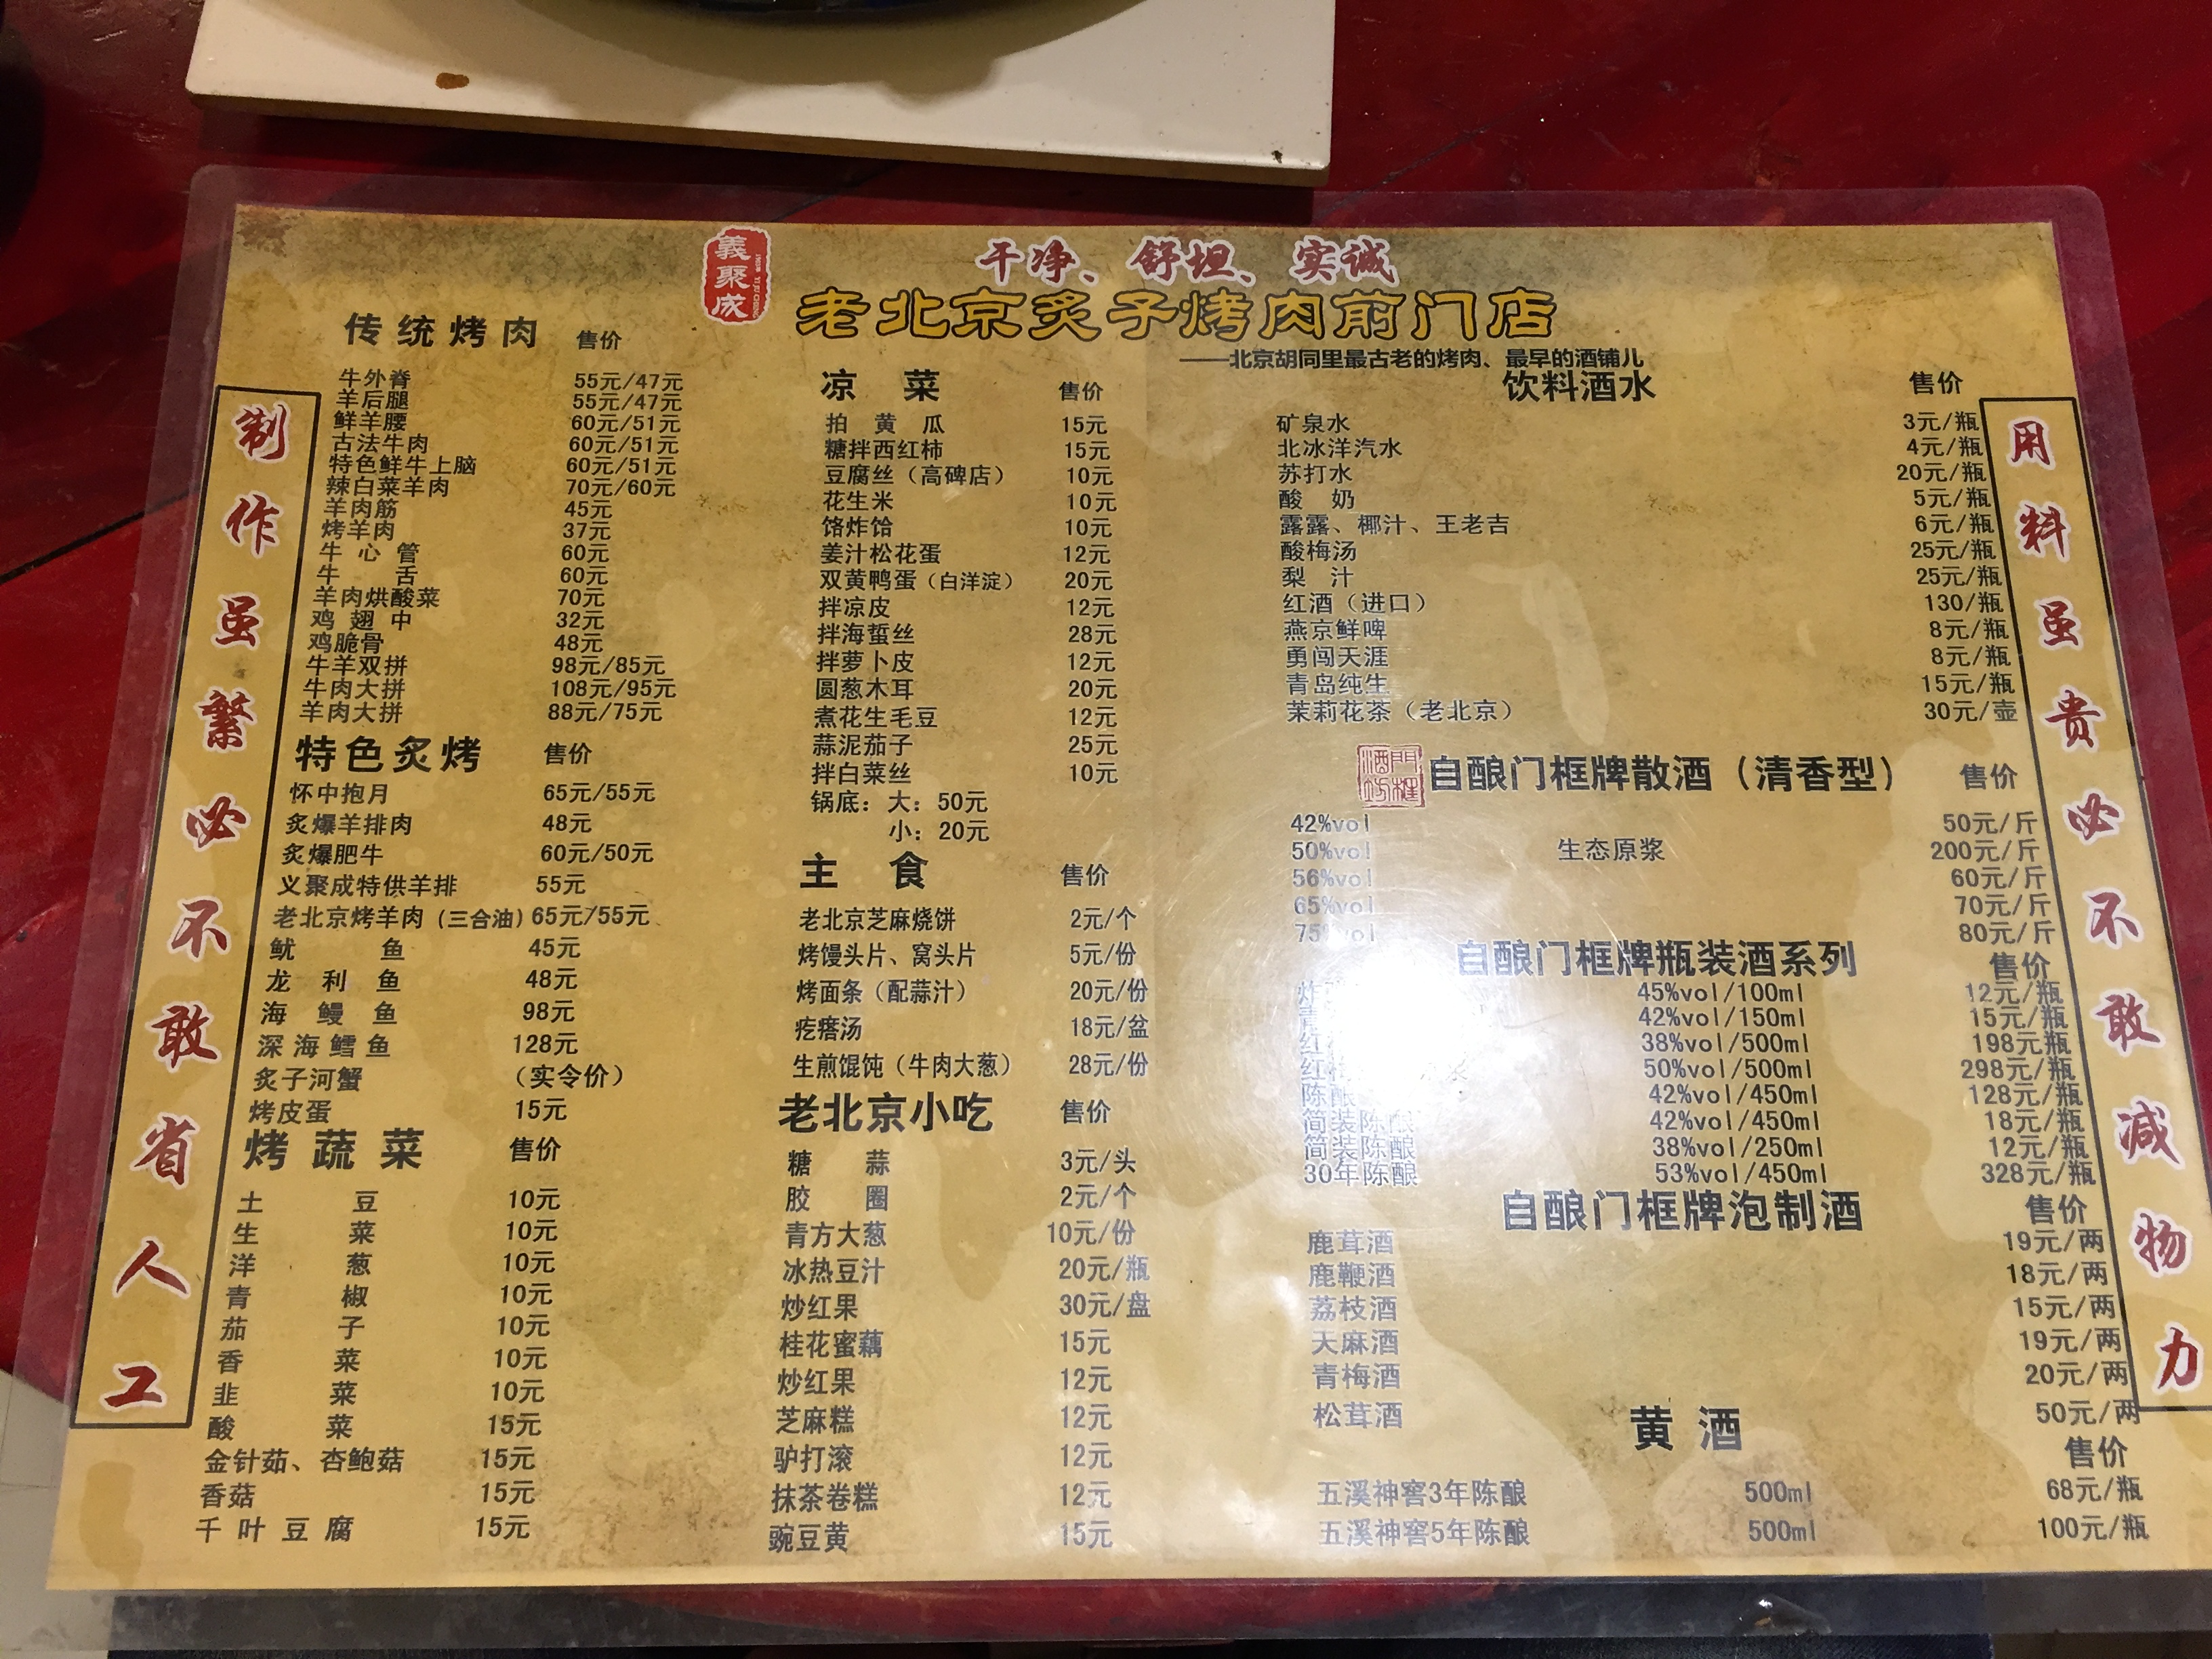 義聚成
干净、舒坦、实诚
老北京炙子烤肉前门店
——北京胡同里最古老的烤肉、最早的酒铺儿
制作虽繁必不敢省人工
传统烤肉 售价
牛外脊 55元/47元
羊后腿 55元/47元
鲜羊腰 60元/51元
古法牛肉 60元/51元
特色鲜牛上脑 60元/51元
辣白菜羊肉 70元/60元
羊肉筋 45元
烤羊肉 37元
牛心管 60元
牛舌 60元
羊肉烘酸菜 70元
鸡翅中 32元
鸡脆骨 48元
牛羊双拼 98元/85元
牛肉大拼 108元/95元
羊肉大拼 88元/75元
特色炙烤 售价
怀中抱月 65元/55元
炙爆羊排肉 48元
炙爆肥牛 60元/50元
义聚成特供羊排 55元
老北京烤羊肉（三合油） 65元/55元
鱿鱼 45元
龙利鱼 48元
海鳗鱼 98元
深海鳕鱼 128元
炙子河蟹 （实令价）
烤皮蛋 15元
烤蔬菜 售价
土豆 10元
生菜 10元
洋葱 10元
青椒 10元
茄子 10元
香菜 10元
韭菜 10元
酸菜 15元
金针茹、杏鲍菇 15元
香菇 15元
千叶豆腐 15元
凉菜 售价
拍黄瓜 15元
糖拌西红柿 15元
豆腐丝（高碑店） 10元
花生米 10元
饹炸饸 10元
姜汁松花蛋 12元
双黄鸭蛋（白洋淀） 20元
拌凉皮 12元
拌海蜇丝 28元
拌萝卜皮 12元
圆葱木耳 20元
煮花生毛豆 12元
蒜泥茄子 25元
拌白菜丝 10元
锅底：大：50元
小：20元
主食 售价
老北京芝麻烧饼 2元/个
烤馒头片、窝头片 5元/份
烤面条（配蒜汁） 20元/份
疙瘩汤 18元/盆
生煎馄饨（牛肉大葱） 28元/份
老北京小吃 售价
糖蒜 3元/头
胶圈 2元/个
青方大葱 10元/份
冰热豆汁 20元/瓶
炒红果 30元/盘
桂花蜜藕 15元
炒红果 12元
芝麻糕 12元
驴打滚 12元
抹茶卷糕 12元
豌豆黄 15元
饮料酒水 售价
矿泉水 3元/瓶
北冰洋汽水 4元/瓶
苏打水 20元/瓶
酸奶 5元/瓶
露露、椰汁、王老吉 6元/瓶
酸梅汤 25元/瓶
梨汁 25元/瓶
红酒（进口） 130/瓶
燕京鲜啤 8元/瓶
勇闯天涯 8元/瓶
青岛纯生 15元/瓶
茉莉花茶（老北京） 30元/壶
門框酒坊
自酿门框牌散酒（清香型） 售价
42%vol 50元/斤
50%vol 生态原浆 200元/斤
56%vol 60元/斤
65%vol 70元/斤
75%vol 80元/斤
自酿门框牌瓶装酒系列 售价
45%vol/100ml 12元/瓶
42%vol/150ml 15元/瓶
38%vol/500ml 198元瓶
50%vol/500ml 298元/瓶
陈酿 42%vol/450ml 128元/瓶
简装陈酿 42%vol/450ml 18元/瓶
简装陈酿 38%vol/250ml 12元/瓶
30年陈酿 53%vol/450ml 328元/瓶
自酿门框牌泡制酒 售价
鹿茸酒 19元/两
鹿鞭酒 18元/两
荔枝酒 15元/两
天麻酒 19元/两
青梅酒 20元/两
松茸酒 50元/两
黄酒 售价
五溪神窖3年陈酿 500ml 68元/瓶
五溪神窖5年陈酿 500ml 100元/瓶
用料虽贵必不敢减物力